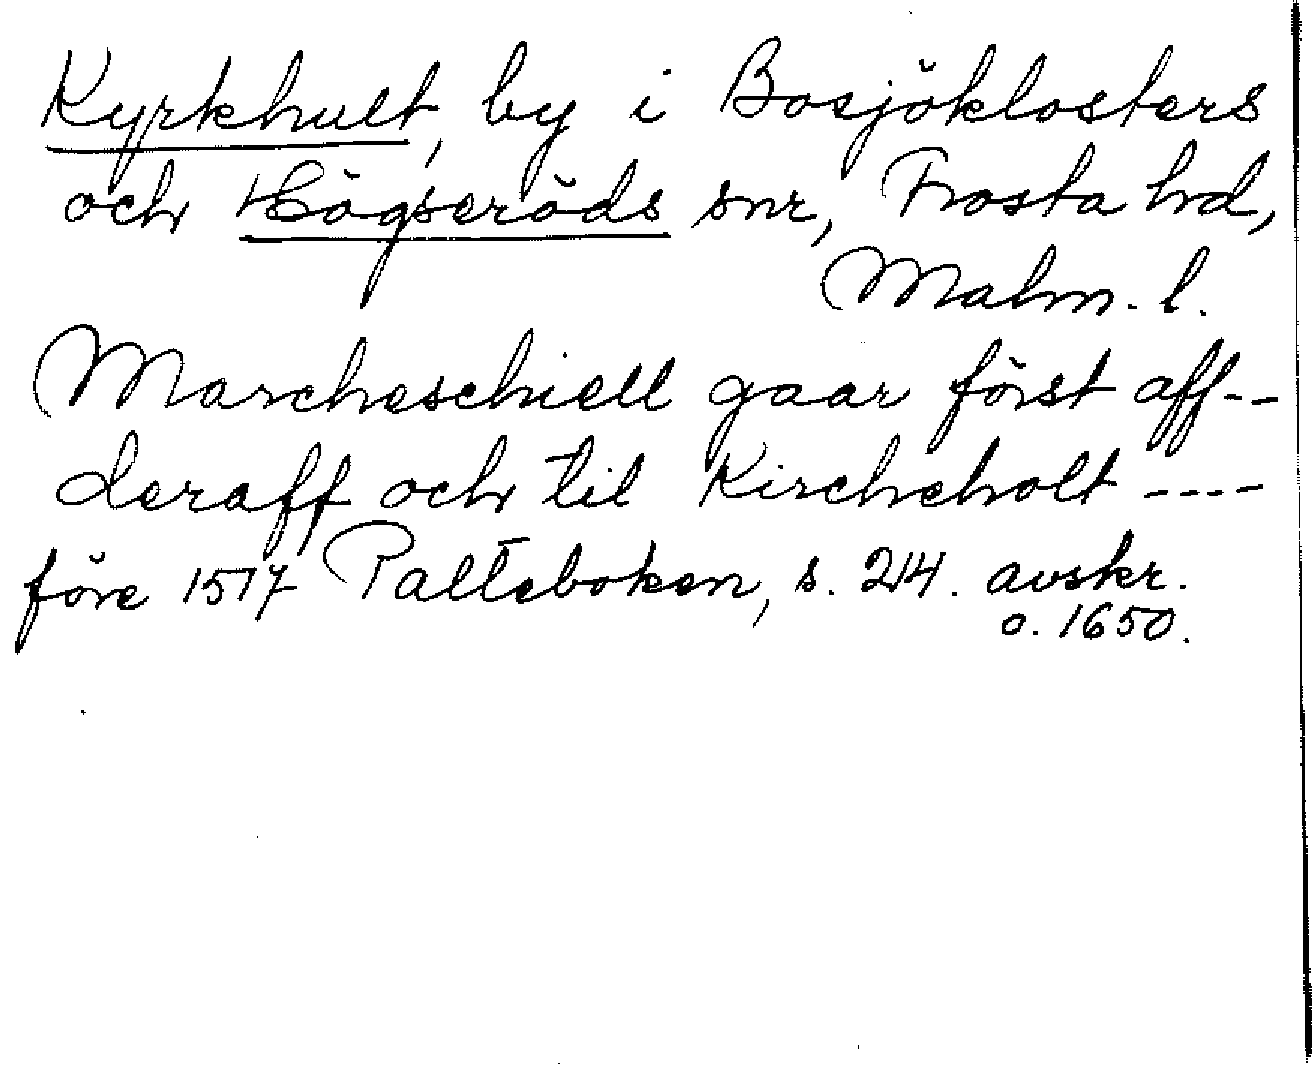 Kyrkhult, by i Bosjöklosters
och Högseröds snr, Frosta hd,
Malm. l.
Marcheschiell gaar först aff--
deraff och til Kircheholt ----
före 1517 Palteboken, s. 214. avskr.
o. 1650.